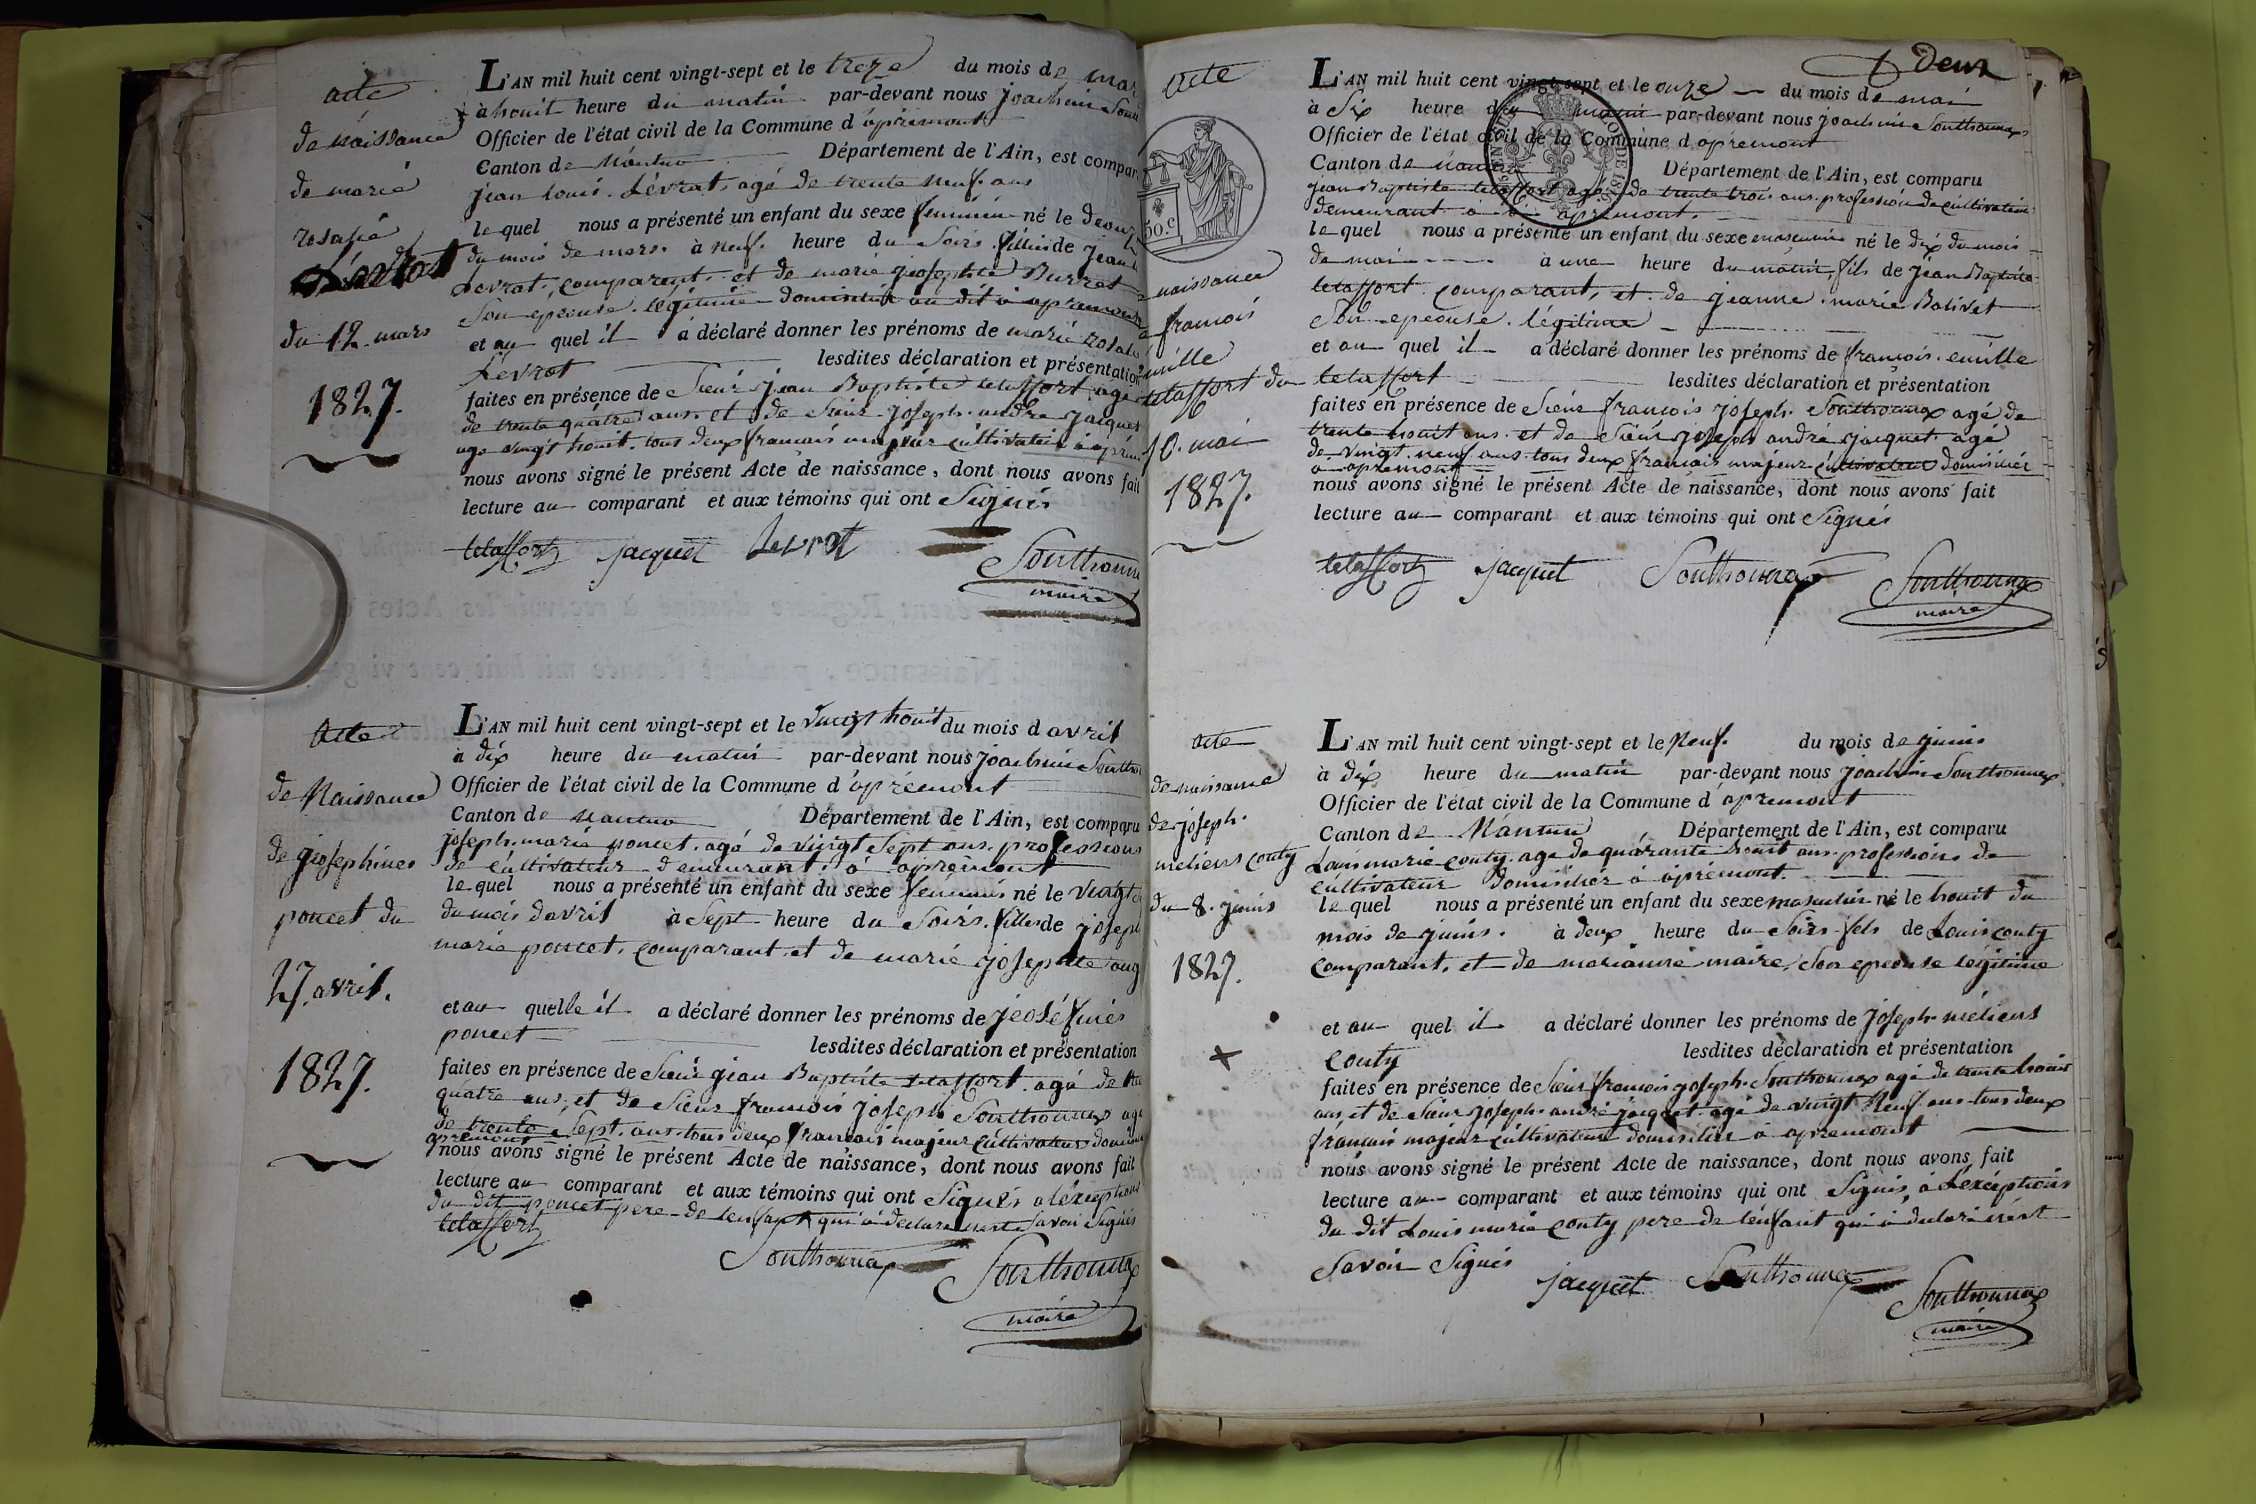 acte
de naissance
de marié
rosalié
Levrat
du 12. mars
1827.
L'AN mil huit cent vingt-sept et le treze du mois de mar
à houit heure du matin par-devant nous joachim Sout
Officier de l'état civil de la Commune d'apremont
Canton de Nantua Département de l'Ain, est compar
jean louis. Levrat, agé de trente neuf ans
le quel nous a présenté un enfant du sexe feminin né le douz
du mois de mars. à neuf. heure du Soirs. fille de jean
Levrat, comparent, et de marie giosephte Burret
Son epouse. legitime domicilié au dit à apremont
et au quel il a déclaré donner les prénoms de marié rosalie
Levrat lesdites déclaration et présentation
faites en présence de Sieur jean Baptiste Delaffort agé
de trente quatre ans. et de Sieur joseph. andré jacquet
age vingt houit. tous deux francais majeur cultivateur à aprem
nous avons signé le présent Acte de naissance, dont nous avons fait
lecture au comparant et aux témoins qui ont Signés
delaffort jacquet Levrat
Southonna
maire
acte
de Naissance
de giosephines
poncet du
27. avril.
1827.
L'AN mil huit cent vingt-sept et le vingt houit du mois d avril
à dix heure du matin par-devant nous joachim Southon
Officier de l'état civil de la Commune d'apremont
Canton de nantua Département de l'Ain, est comparu
joseph. marie poncet. agé de vingt Sept ans. professions
de cultivateur demeurant. à apremont
le quel nous a présenté un enfant du sexe feminin né le vingt
du mois d avril à Sept heure du Soirs. filles de joseph
marie poncet, comparant et de marie giosephte
et au quelle il a déclaré donner les prénoms de jioséfines
poncet lesdites déclaration et présentation
faites en présence de Sieur jean Baptiste delaffort. agé de tren
quatre ans, et de Sieur francois joseph Southonnax age
de trente Sept. ans. tous deux francais majeur cultivateur domicilie
apremont
nous avons signé le présent Acte de naissance, dont nous avons fait
lecture au comparant et aux témoins qui ont Signés a l'éxception
du dit poncet pere de lenfant qui à déclaré nient Savoir Signés
delaffort
Southonnax Southonnax
maire
deux
acte
50. C
naissance
francois
emille
delaffort du
10. mai
1827.
L'AN mil huit cent vingt-sept et le onze du mois de mai
à Six heure du matin par-devant nous joachim Southonnax
Officier de l'état civil de la Commune d'apremont
Canton de nantua Département de l'Ain, est comparu
jean Baptiste delaffort agé de trente trois ans. profession de cultivateur
demeurant à apremont.
le quel nous a présenté un enfant du sexe masculin né le dix du mois
de mai à une heure du matin, fils de jean Baptiste
delaffort comparant, et de jeanne. marie Bolivet
Son epouse. légitime
et au quel il a déclaré donner les prénoms de françois. emille
delaffort lesdites déclaration et présentation
faites en présence de Sieur francois joseph. Southonnax agé de
trente houit ans. et de Sieur joseph andré jacquet. agé
de vingt. neuf ans. tous deux francais majeur. cultivateur domicilier
a apremont
nous avons signé le présent Acte de naissance, dont nous avons fait
lecture au comparant et aux témoins qui ont Signés
delaffort jacquet Southonnax Southonnax
maire
acte
de naissance
de joseph.
meliens couty
du 8. juins
1827.
L'AN mil huit cent vingt-sept et le Neuf. du mois de juins
à dix heure du matin par-devant nous joachim Southonnax
Officier de l'état civil de la Commune d'apremont
Canton de Nantua Département de l'Ain, est comparu
Louis marie couty. age de quarante houit ans. professions de
cultivateur domicilier à apremont.
le quel nous a présenté un enfant du sexe masculin né le houit du
mois de juins. à deux heure du Soirs fils de Louis couty
comparant, et de marianne maire, Son epouse légitime
et au quel il a déclaré donner les prénoms de joseph méliens
couty lesdites déclaration et présentation
faites en présence de Sieur francois joseph. Southonnax agé de trente houit
ans, et de Sieur joseph. andré jacquet. agé de vingt Neuf ans tous deux
francais majeur cultivateur domicilier à apremont
nous avons signé le présent Acte de naissance, dont nous avons fait
lecture au comparant et aux témoins qui ont Signés, à Léxceptions
du dit Louis marie couty pere de lénfant qui à déclaré nient
Savoir Signés
jacquet Southonnax Southonnax
maire